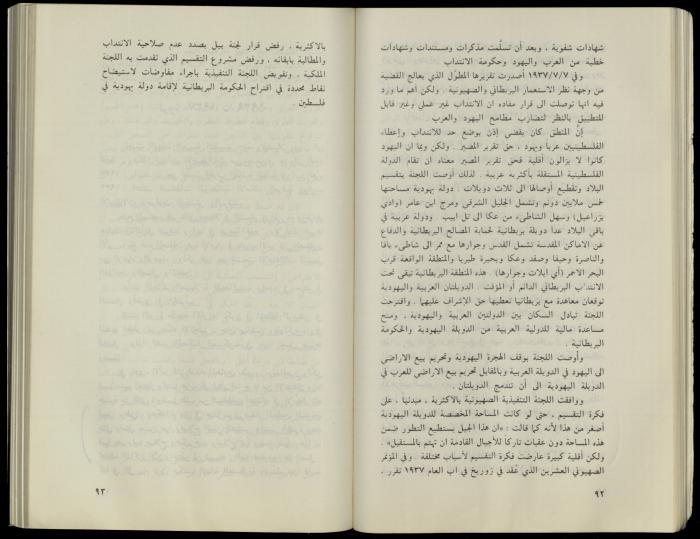 شهادات شفوية ، وبعد أن تسلّمت مذكرات ومستندات وشهادات
خطية من العرب واليهود وحكومة الانتداب
وفي ١٩٣٧/٧/٧ أصدرت تقريرها المطوّل الذي يعالج القضية
من وجهة نظر الاستعمار البريطاني والصهيونية . ولكن أهم ما ورد
فيه انها توصلت الى قرار مفاده ان الانتداب غير عملي وغير قابل
للتطبيق بالنظر لتضارب مطامح اليهود والعرب .
إنّ المنطق كان يقضي إذن بوضع حد للانتداب وإعطاء
الفلسطينيين عربا ويهود ، حق تقرير المصير . ولكن وبما ان اليهود
كانوا لا يزالون أقلية فحق تقرير المصير معناه ان تقام الدولة
الفلسطينية المستقلة بأكثرية عربية . لذلك أوصت اللجنة بتقسيم
البلاد وتقطيع أوصالها الى ثلاث دويلات . دولة يهودية مساحتها
خمس ملايين دونم وتشمل الجليل الشرقي ومرج ابن عامر (وادي
يزراعيل) وسهل الشاطىء من عكا الى تل ابيب . ودولة عربية في
باقي البلاد عدا دويلة بريطانية لحماية المصالح البريطانية والدفاع
عن الاماكن المقدسة تشمل القدس وجوارها مع ممر الى شاطىء يافا
والناصرة وحيفا وصفد وعكا وبحيرة طبريا والمنطقة الواقعة قرب
البحر الاحمر (أي ايلات وجوارها) . هذه المنطقة البريطانية تبقى تحت
الانتداب البريطاني الدائم أو المؤقت . الدويلتان العربية واليهودية
توقعان معاهدة مع بريطانيا تعطيها حق الإشراف عليهما . واقترحت
اللجنة تبادل السكان بين الدولتين العربية واليهودية ، ومنح
مساعدة مالية للدولية العربية من الدويلة اليهودية والحكومة
البريطانية .
وأوصت اللجنة بوقف الهجرة اليهودية وتحريم بيع الاراضي
الى اليهود في الدويلة العربية وبالمقابل تحريم بيع الاراضي للعرب في
الدويلة اليهودية الى أن تندمج الدويلتان .
ووافقت اللجنة التنفيذية الصهيونية بالاكثرية ، مبدئيا ، على
فكرة التقسيم ، حتى لو كانت المساحة المخصصة للدويلة اليهودية
أصغر من هذا لأنه كما قالت : «ان هذا الجيل يستطيع التطور ضمن
هذه المساحة دون عقبات تاركاً للأجيال القادمة ان تهتم بالمستقبل» .
ولكن أقلية كبيرة عارضت فكرة التقسيم لأسباب مختلفة . وفي المؤتمر
الصهيوني العشرين الذي عُقد في زوريخ في اب العام ١٩٣٧ تقرر ،
٩٢
بالاكثرية ، رفض قرار لجنة بيل بصدد عدم صلاحية الانتداب
والمطالبة بابقائه ، ورفض مشروع التقسيم الذي تقدمت به اللجنة
الملكية . وتفويض اللجنة التنفيذية باجراء مفاوضات لاستيضاح
نقاط محددة في اقتراح الحكومة البريطانية لإقامة دولة يهودية في
فلسطين .
٩٣